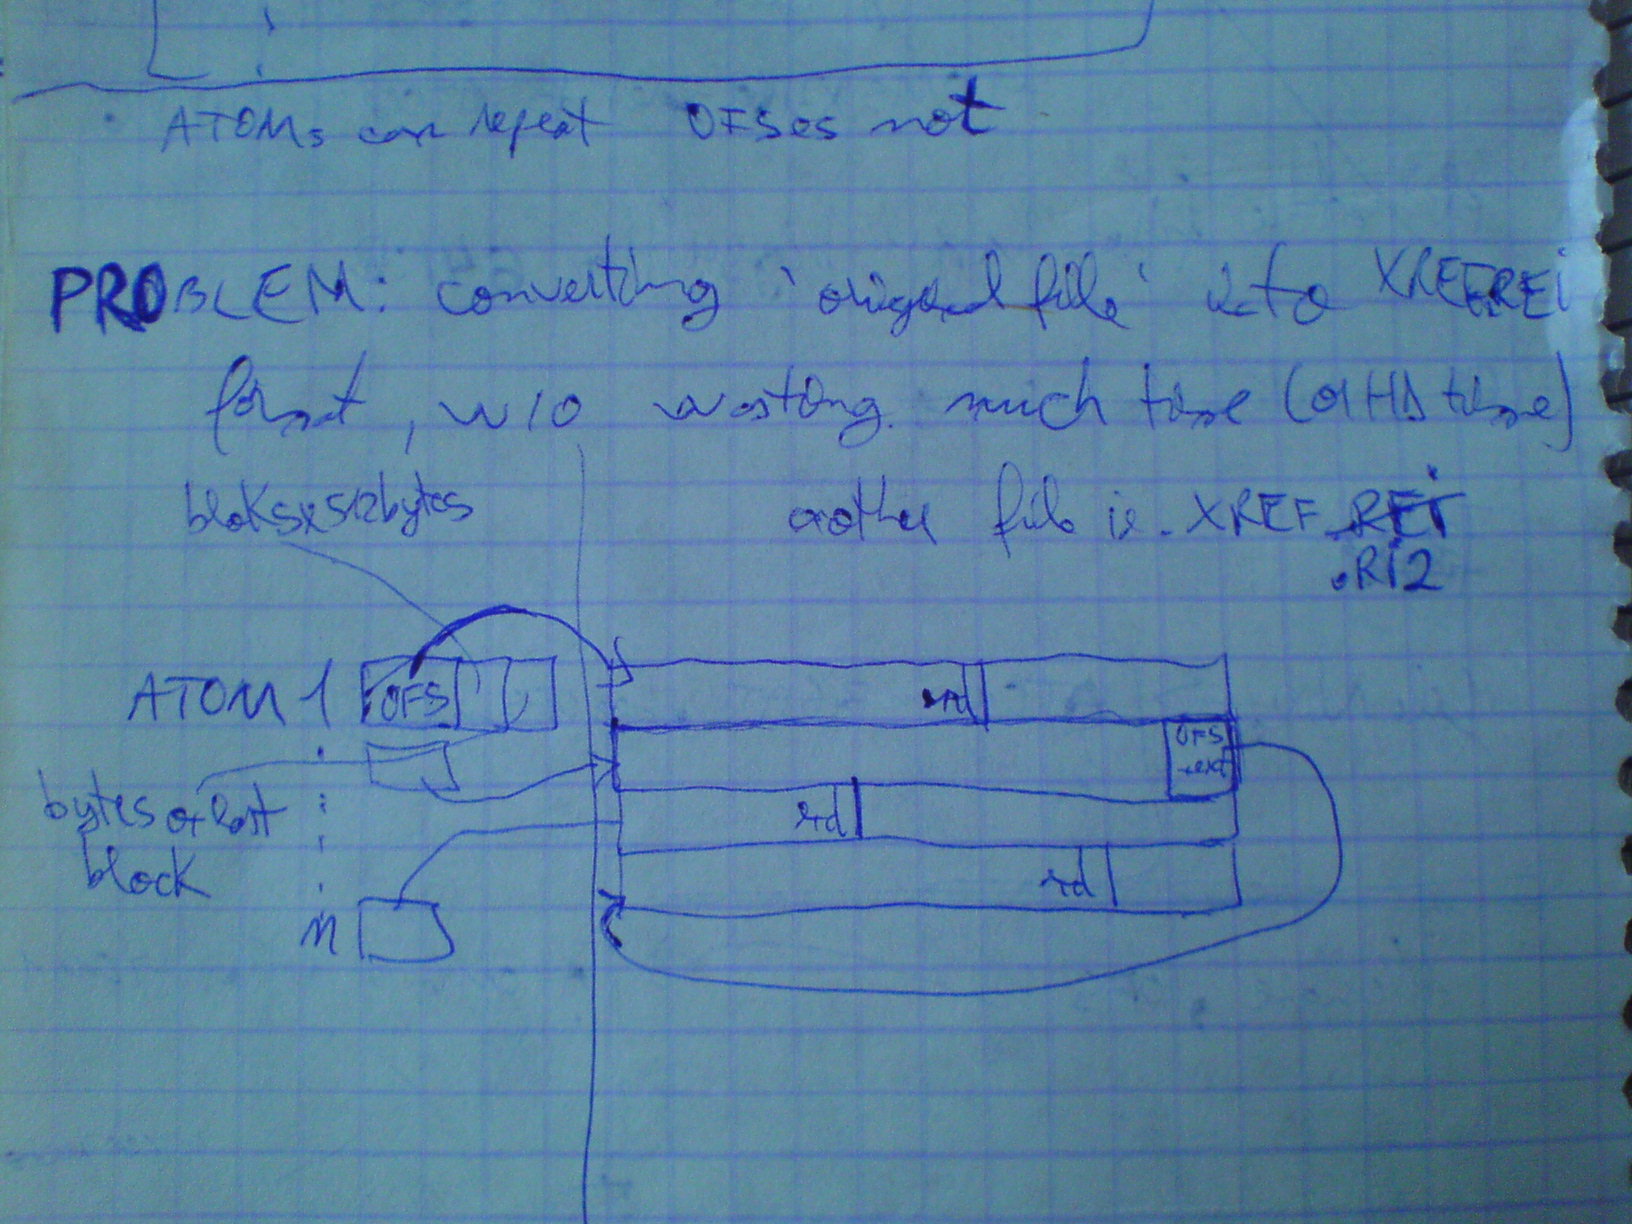 ATOMs can repeat OFSes not
PROBLEM: converting 'original file' into XREF.REi
format, w/o wasting much time (or HD time)
bloks x 512 bytes
another file is XREF .REi
.Ri2
ATOM 1 OFS
rd
OFS
next
bytes of last
block
rd
rd
n